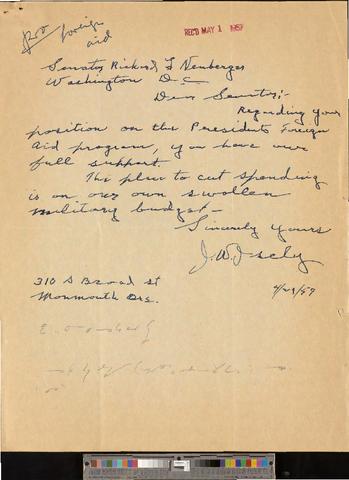 Pro foreign
aid
REC'D MAY 1 1957
Senator Richard L Neuberger
Washington D.C
Dear Senator;-
Regarding your
position on the Presidents Foreign
Aid program, you have our
full support.
The place to cut spending
is on our own swollen
military budget-
Sincerely yours
J. W. Isely
310 S Broad st
Monmouth Ore.
4/29/57